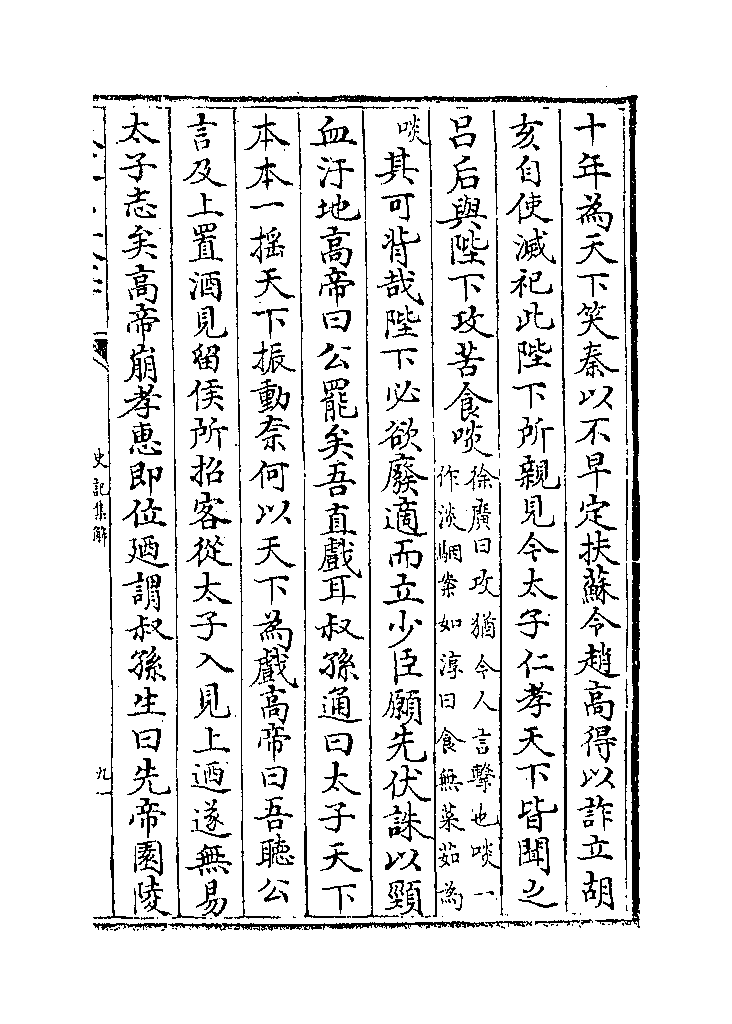 十年為天下笑秦以不早定扶蘇令趙高得以詐立胡
亥自使滅祀此陛下所親見今太子仁孝天下皆聞之
吕后與陛下攻苦食啖徐廣曰攻猶今人言擊也啖一
作淡駰案如淳曰食無菜茹為
啖其可背哉陛下必欲廢適而立少臣願先伏誅以頸
血汙地高帝曰公罷矣吾直戲耳叔孫通曰太子天下
本本一揺天下振動奈何以天下為戲高帝曰吾聽公
言及上置酒見留侯所招客從太子入見上迺遂無易
太子志矣高帝崩孝惠即位迺謂叔孫生曰先帝園陵
史記集解